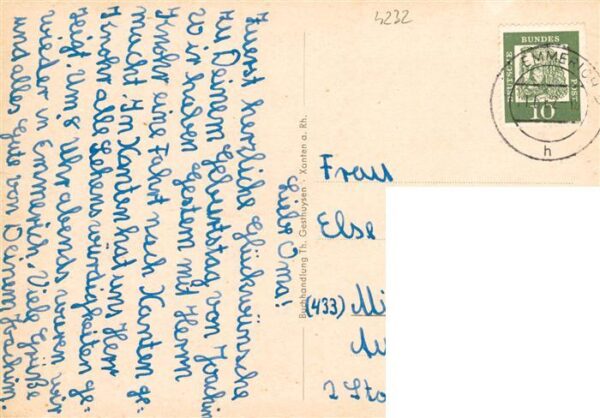 Liebe Oma!
Zuerst herzliche Glückwünsche
zu Deinem Geburtstag von Joachim
Wir haben Gestern mit Herrn
eine Fahrt nach Xanten ge-
macht. Im Xanten hat uns Herr
alle Sehenswürdigkeiten ge-
zeigt. Um 8 Uhr abends waren wir
wieder in Emmerich. Viele Grüße
und alles Gute von Deinem Joachim.
Buchhandlung Th. Gesthuysen · Xanten a. Rh.
5232
DEUTSCHE BUNDES POST
10
EMMERICH
h
Frau
Else
(433) Mü